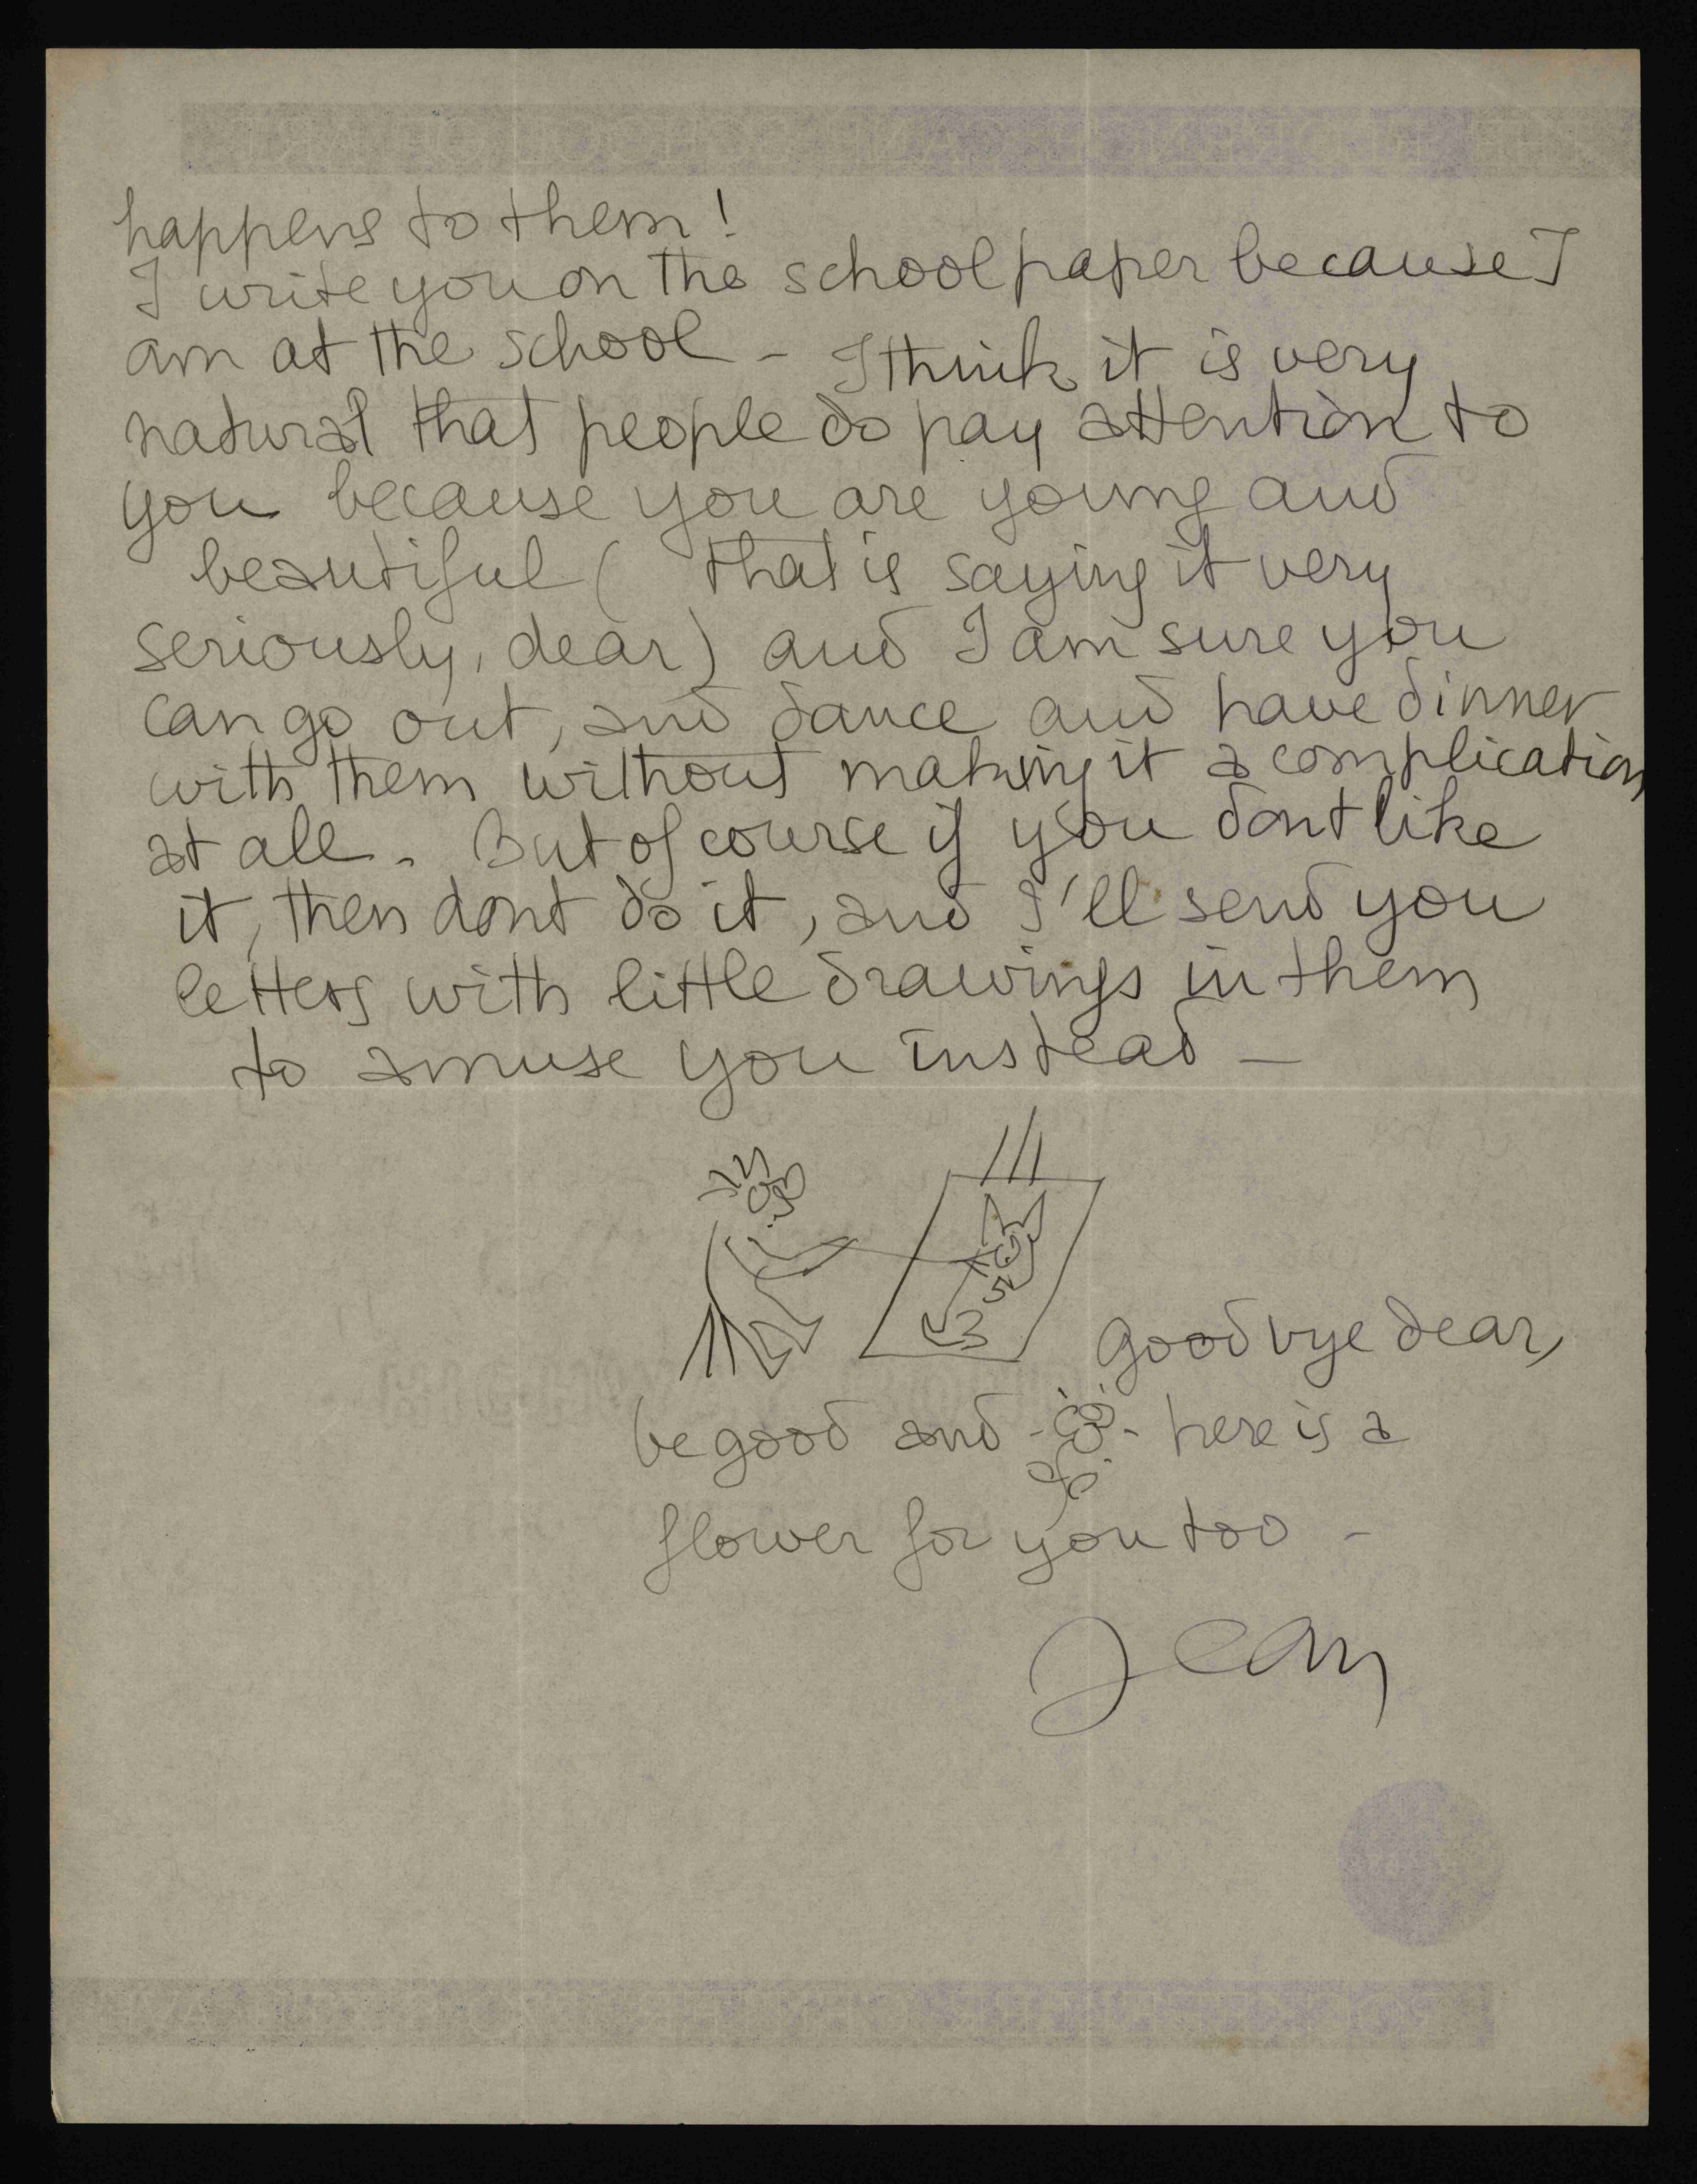 happens to them!
I write you on the school paper because I
am at the school - I think it is very
natural that people do pay attention to
you because you are young and
beautiful ( that is saying it very
seriously, dear) and I am sure you
can go out, and dance and have dinner
with them without making it a complication
at all. But of course if you dont like
it, then dont do it, and I'll send you
letters with little drawings in them
to amuse you instead —
Good bye dear,
be good and here is a
flower for you too -
Jean